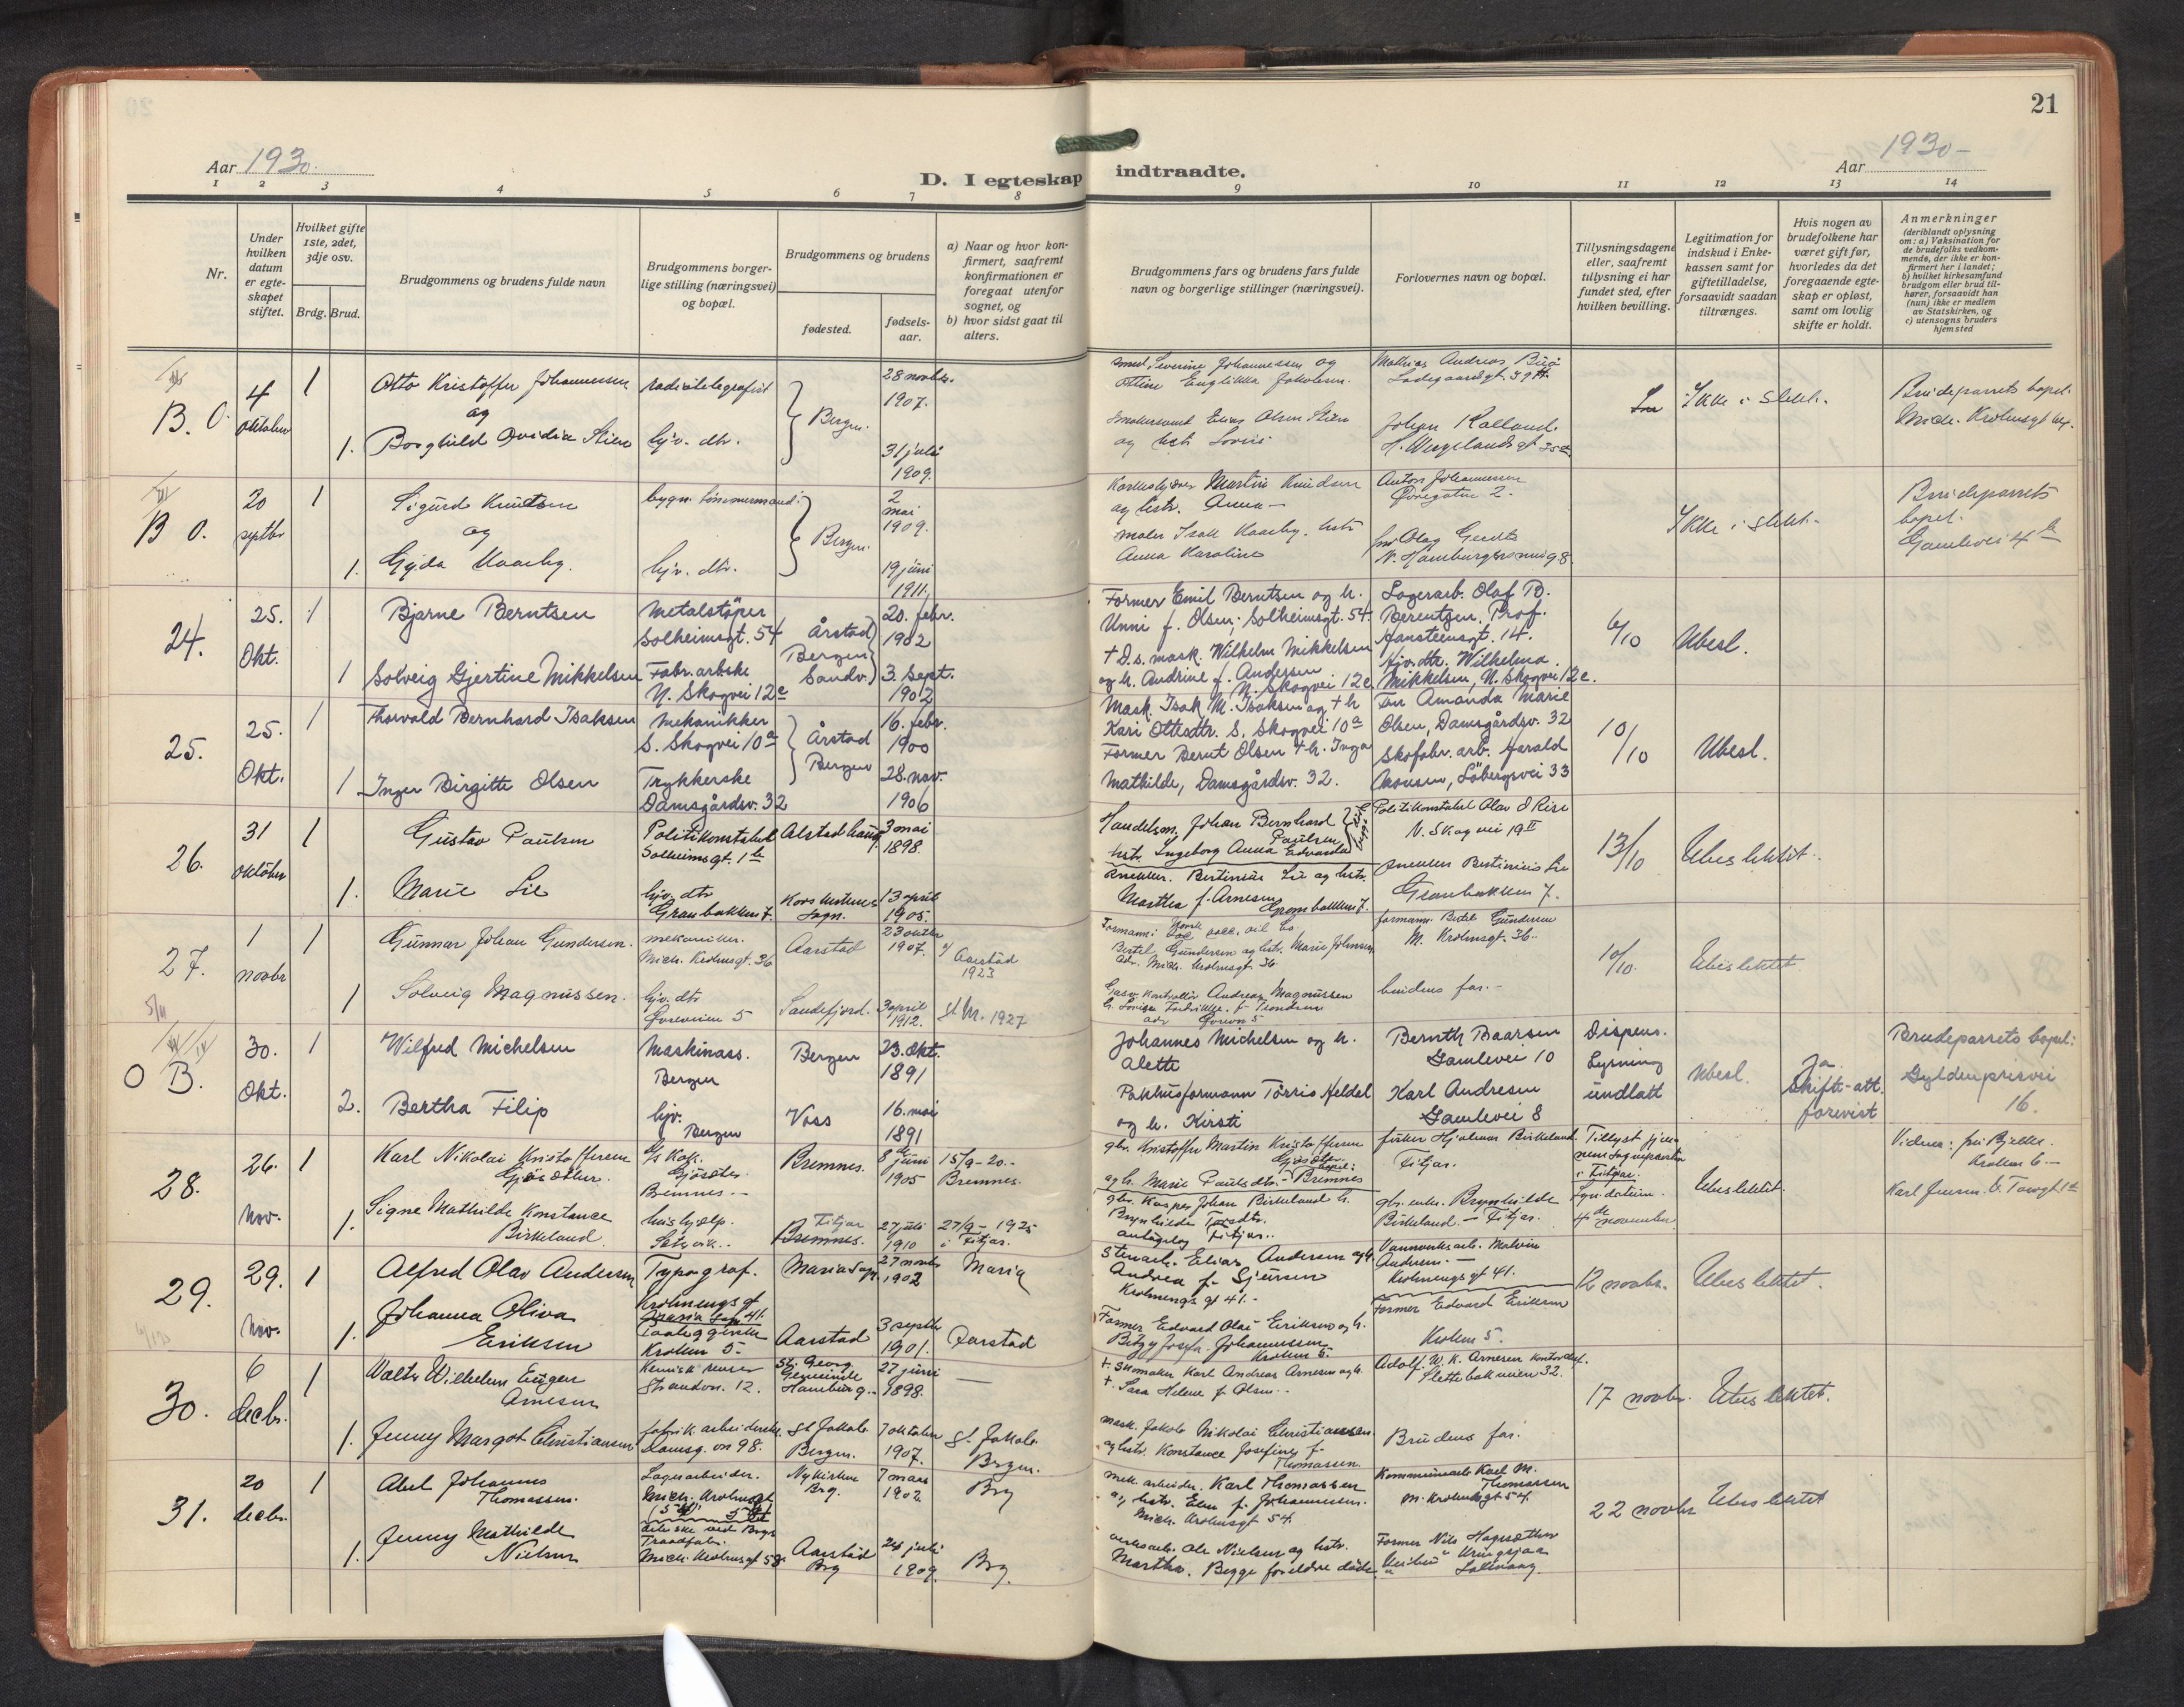 21
Aar 1930.
D. I egteskap indtraadte.
Aar 1930-
1 2 3 4 5 6 7 8 9 10 11 12 13 14
Nr.
Under
hvilken
datum
er egte-
skapet
stiftet.
Hvilket gifte
1ste, 2det,
3dje osv.
Brdg. Brud.
Brudgommens og brudens fulde navn
Brudgommens borger-
lige stilling (næringsvei)
og bopæl.
Brudgommens og brudens
fødested.
fødsels-
aar.
a) Naar og hvor kon-
firmert, saafremt
konfirmationen er
foregaat utenfor
sognet, og
b) hvor sidst gaat til
alters.
Brudgommens fars og brudens fars fulde
navn og borgerlige stillinger (næringsvei).
Forlovernes navn og bopæl.
Tillysningsdagene
eller, saafremt
tillysning ei har
fundet sted, efter
hvilken bevilling.
Legitimation for
indskud i Enke-
kassen samt for
giftetilladelse,
forsaavidt saadan
tiltrænges.
Hvis nogen av
brudefolkene har
været gift før,
hvorledes da det
foregaaende egte-
skap er opløst,
samt om lovlig
skifte er holdt.
Anmerkninger
(deriblandt oplysning
om: a) Vaksination for
de brudefolks vedkom-
mende, der ikke er kon-
firmert her i landet;
b) hvilket kirkesamfund
brudgom eller brud til-
hører, forsaavidt han
(hun) ikke er medlem
av Statskirken, og
c) utensogns bruders
hjemsted
B. O.
4
oktober
1
Otto Kristoffer Johannessen
og
1. Borghild Ovidia Stien
radiotelegrafist
hjv. dtr.
Bergen.
28 novbr.
1907.
31 juli
1909.
smed Severine Johannessen og
Ottine Englikka Jakobsen.
Elias Olsen Stien
og hstr. Lovise
Mathias Andreas
Ladegaardsgt. 39
Johan Kalland.
H. Wergelandsgt 35
Ikke i slekt.
Brudeparrets bopel.
Mich. Krohnsgt
B O.
20
septbr
1
Sigurd Knutsen
og
1. Gyda Kaarby.
bygn. tømmermand.
hjv. dtr.
Bergen.
2
mai
1909.
19 juni
1911.
Martin Knudsen
og hstr. Anna
maler Isak Kaarby. hstr
Anna Karoline
Anton Johannessen
Øvregaten 2.
Olag
N. Hamburgersmug 8.
Ikke i slekt.
Brudeparrets
bopel.
Gamlevei 4
24.
25.
Okt.
1
Bjarne Berntsen
1 Solveig Gjertine Mikkelsen
Metalstøper
Solheimsgt. 54
Fabr. arbske
N. Skogvei 12c
Årstad
Bergen
Sandv.
20. febr.
1902
3. Sept.
1902
Former Emil Berntsen og h.
Unni f. Olsen, Solheimsgt. 54.
† D.s. mask. Wilhelm Mikkelsen
og h. Andrine f. Andersen
N. Skogvei 12c
Lagerarb. Olaf B.
Berentzen, Prof.
Hansteensgt. 14.
Hjv. dtr. Wilhelma
Mikkelsen, N. Skogvei 12c.
6/10
Ubesl.
25.
25.
Okt.
1
Thorvald Bernhard Isaksen
1 Inger Birgitte Olsen
Mekanikker
S. Skogvei 10a
Trykkerske
Damsgårdsv. 32
Årstad
Bergen
16. febr.
1900
28. nov.
1906
Mask. Isak M. Isaksen og † h
Kari Ottesdtr. S. Skogvei 10a
Former Bernt Olsen † h. Inga
Mathilde, Damsgårdsv. 32.
Fru Amanda Marie
Olsen, Damsgårdsv. 32
Skofabr. arb. Harald
Monsen, Løbergsvei 33
10/10
Ubesl.
26.
31
oktober
1
Gustav Paulsen
1. Marie Lie
Politikonstabel
Solheimsgt. 1b
hjv. dtr
Granbakken 7.
Alstadhaug
Kors kirkens
sogn.
3 mai
1898.
13 april
1905.
Handelsm. Johan Bernhard
Paulsen
hstr. Ingeborg Anna Edvarda
snekker. Bertinius Lie og hstr.
Marthea f. Arnesen
Granbakken 7.
Politikonstabel Olav O Rise
N. Skogvei 19 II
snekker Bertinius Lie
Granbakken 7.
13/10
Ubeslektet.
27.
1
novbr
1
Gunnar Johan Gundersen.
1 Solveig Magnussen.
mekaniker.
Mich. Krohnsgt. 36
hjv. dtr
Øvreveien 5
Aarstad
Sandefjord.
23 oktbr
1907.
3 april
1912.
Aarstad
1923
St M. 1927
Formann: Norsk
Bertel Gundersen og hstr. Marie Johnsen
adr. Mich. Krohnsgt. 36.
Kontrollør Andreas Magnussen
h. Lovise Fredrikke f.
formann Bertel Gundersen
M. Krohnsgt. 36.
brudens far.
10/10.
Ubeslektet
5/11
O B.
30.
Okt.
1
Wilfred Michelsen
2. Bertha Filip
Maskinass.
Bergen
hjv.
Bergen
Bergen
Voss
23. Okt.
1891
16. mai
1891
Johannes Michelsen og h.
Alette
Pakhusformann Tørris Heldal
og h. Kirsti
Bernth Baarsen
Gamlevei 10
Karl Andresen
Gamlevei 8
Dispens.
Lysning
undlatt
Ubesl.
Ja.
Skifte-att.
forevist
Brudeparrets bopel:
Gyldenprisvei
16.
28.
26.
Nov.
1
Karl Nikolai Kristoffersen
Gjøsæter.
1. Signe Mathilde Konstance
Birkeland
Gjøsæter
Bremnes.
hushjælp.
Bremnes.
Fitjar
Bremnes.
8de juni
1905
27 juli
1910
15/9-20.
Bremnes.
27/9-1925
i Fitjar.
gbr. Kristoffer Martin Kristoffersen
Gjøsæter
bopel:
og h. Marie Paulsdtr. Bremnes
gbr. Kasper Johan Birkeland h.
Brynhilde
Fitjar.
fisker Hjalmar Birkeland
Fitjar.
gbr. enke. Brynhilde
Birkeland. — Fitjar.
Tillyst
i Fitjar.
4de november
Ubeslektet.
Vidner: fru Bjelke.
Krohnen 6.
Karl Jensen.
29.
29.
Nov.
1
Alfred Olav Andersen
1. Johanna Oliva
Eriksen
Typograf.
Krohnengsgt
Maria Sogn 41.
Krohnen 5.
Maria Sogn
Aarstad
27 novbr
1902
3 septbr
1901.
Maria
Aarstad
Stenarb. Elias Andersen og h.
Andrea f. Sjursen
Krohnengsgt 41.
Former Edvard Olai Eriksen og h.
Josefa Johannessen
Krohnen 5.
Vannverksarb. Malvin
Andersen.
Krohnengsgt 41.
Former Edvard Eriksen
Krohnen 5.
12 novbr.
Ubeslektet.
30.
6
decbr.
1
Walter Wilhelm Eugen
Arnesen
1. Jenny Margot Christiansen
Kemisk renser
Strandvn. 12.
fabrik arbeiderske
Damsg. vn 98.
St. Georg
Gemeinde
Hamburg.
St Jakob
Bergen.
27 juni
1898.
7 oktober
1907.
—
St. Jakob
Bergen.
† Skomaker Karl Andreas Arnesen og h.
† Sara Helene f. Olsen.
mask. Jakob Nikolai Christiansen
og hstr. Konstance Josefine f.
Thomassen.
Adolf. W. K. Arnesen kontorchef.
Slettebakveien 32.
Brudens far.
17 novbr.
Ubeslektet.
31.
20
decbr.
1
Abel Johannes
Thomassen.
1. Jenny Mathilde
Nielsen
Lagerarbeider.
Mich. Krohnsgt
54
Traadfabr.
Mich. Krohnsgt 58a
Nykirken
Brg.
Aarstad
Brg
7 mars
1902.
24 juli
1909.
Brg
Brg.
mek. arbeider. Karl Thomassen
og hstr. Elen f. Johannessen.
Mich. Krohnsgt 54.
verksarb. Ole Nielsen og hstr.
Martha. Begge foreldre døde.
Kommunearb Karl M.
Thomassen
M. Krohnsgt 54.
Former Nils
Kringsjaa
Laksevaag.
22 novbr
Ubeslektet